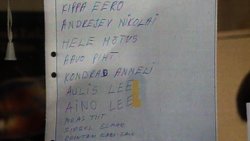 KIPPA EERO
ANDREJEV NIKOLAI
HELE MÕTUS
AAVO PIHT
KONDRAD ANNELI
AULIS LEE
AINO LEE
TIIT